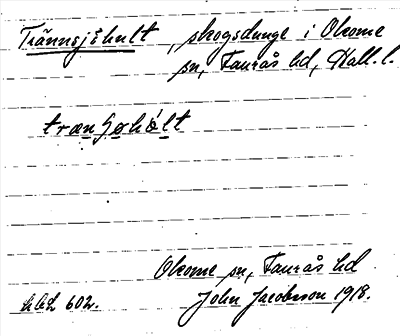 Trännsjöhult, skogsdunge i Okome
sn, Faurås hd, Hall. l.
trænʃøhòlt
Okome sn, Faurås hd
hbd 602. John Jacobsson 1918.